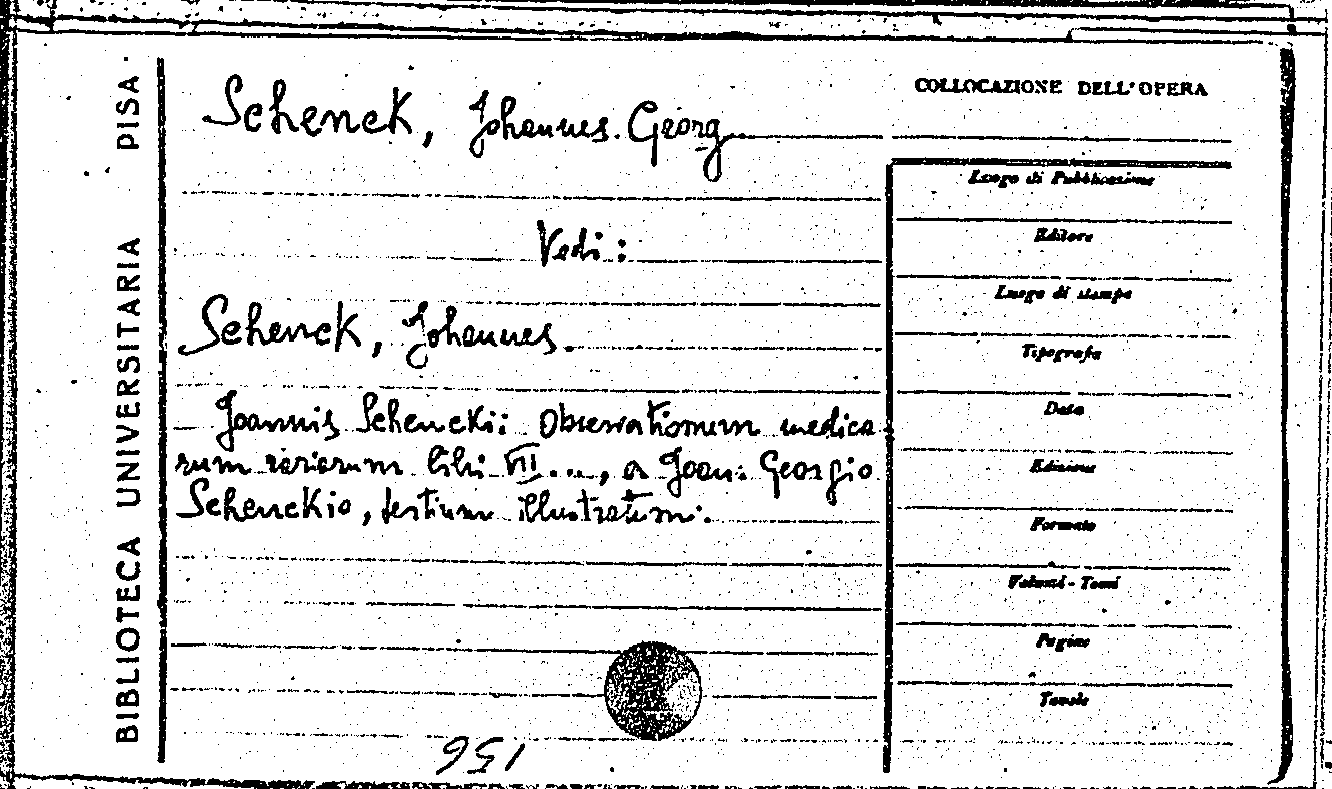 BIBLIOTECA UNIVERSITARIA PISA
Schenck, Johannes Georg
COLLOCAZIONE DELL'OPERA
Vedi:
Schenck, Johannes.
Joannis Schenckii: Observationum medica
rum rariorum libri VII..., a Joan: Georgio
Schenckio, tertium illustratum.
Luogo di Pubblicazione
Editore
Luogo di stampa
Tipografia
Data
Edizione
Formato
Volumi - Tomi
Pagine
Tavole
156